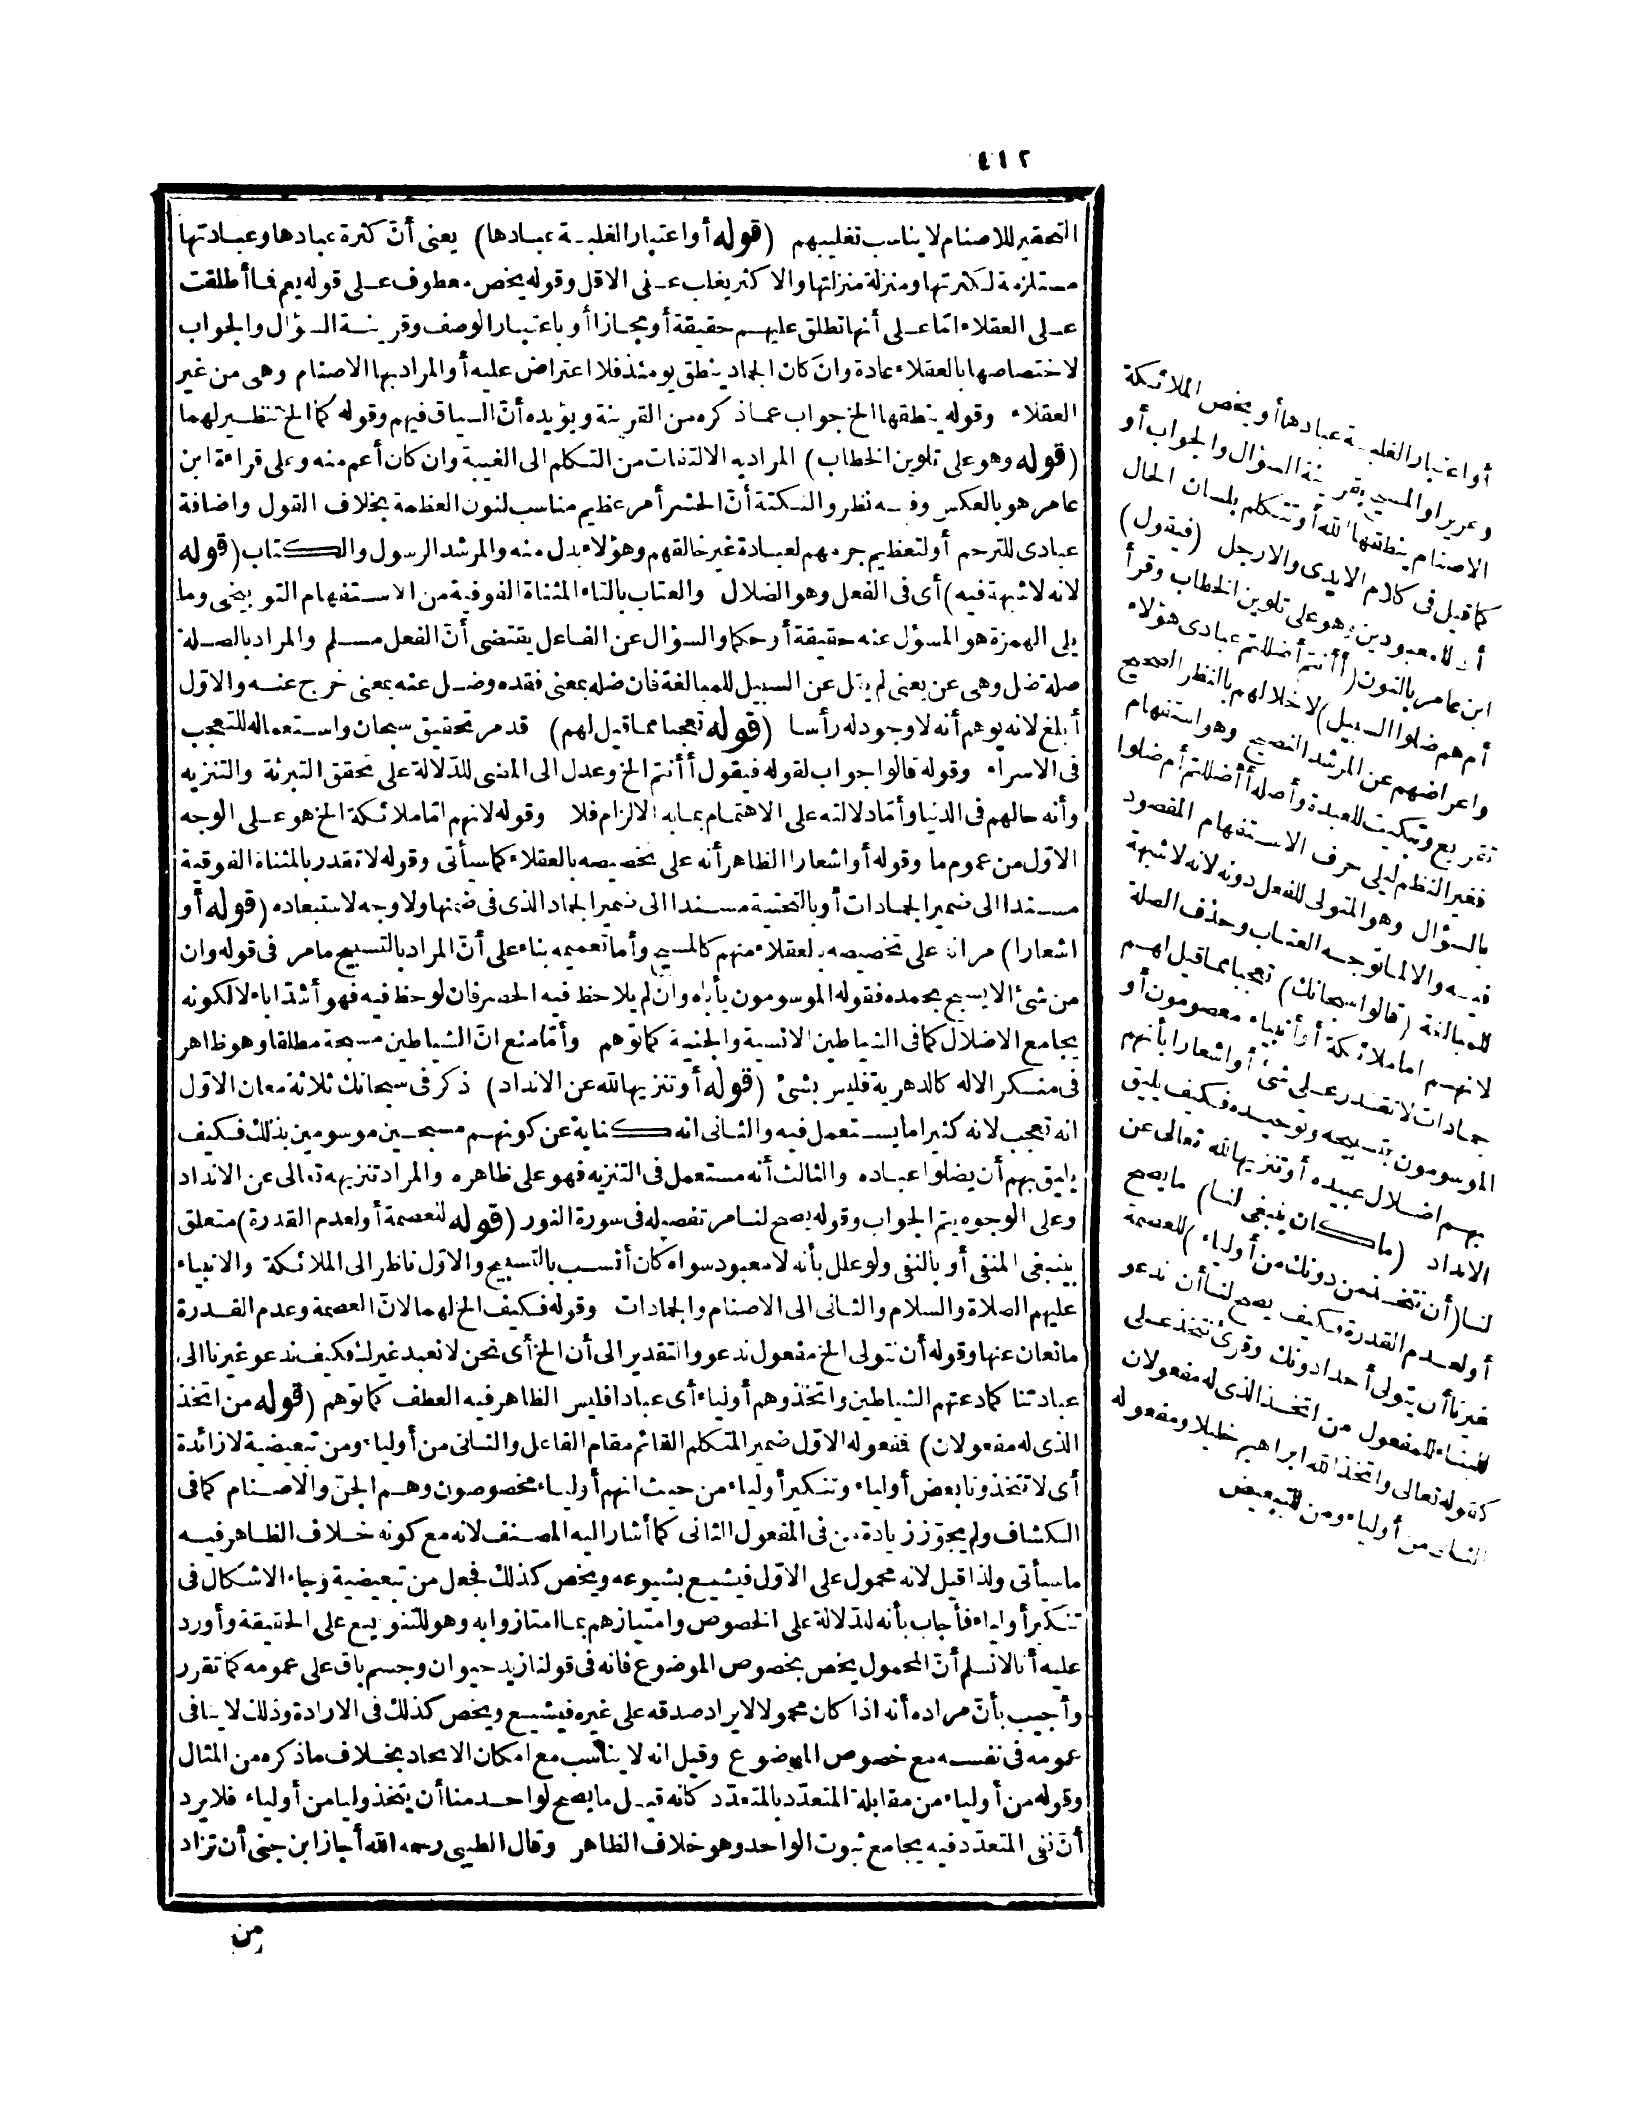 ٤١٢
التحقير للاصنام لا يناسب تغليبهم (قوله أو اعتبار الغلبة عبادها) يعنى أنّ كثرة عبادها وعبادتها
مستلزمة لكثرتها ومنزلة منزلتها والاكثر يغلب على الاقل وقوله يخص معطوف على قوله يعم فما أطلقت
على العقلاء امّا على أنها تطلق عليهم حقيقة أو مجازا أو باعتبار الوصف وقرينة السؤال والجواب
لاختصاصها بالعقلاء عادة وان كان الجماد ينطق يومئذ فلا اعتراض عليه أو المراد بها الاصنام وهى من غير
العقلاء وقوله ينطقها الخ جواب عما ذكره من القرينة ويؤيده أنّ السياق فيهم وقوله كما الخ تنظير لهما
(قوله وهو على تلوين الخطاب) المراد به الالتفات من التكلم الى الغيبة وان كان أعم منه وعلى قراءة ابن
عامر هو بالعكس وفيه نظر والنكتة أنّ الحشر أمر عظيم مناسب لنون العظمة بخلاف القول واضافة
عبادى للترحم أو لتعظيم جرمهم لعبادة غير خالقهم وهؤلاء بدل منه والمرشد الرسول والكتاب (قوله
لانه لا شبهة فيه) أى فى الفعل وهو الضلال والعتاب بالتاء المثناة الفوقية من الاستفهام التوبيخى وما
يلى الهمزة هو المسؤل عنه حقيقة أو حكما والسؤال عن الفاعل يقتضى أنّ الفعل مسلم والمراد بالصلة
صلة ضل وهى عن يعنى لم يقل عن السبيل للمبالغة فان ضله بمعنى فقده وضل عنه بمعنى خرج عنه والاوّل
أبلغ لانه يوهم أنه لا وجود له رأسا (قوله تعجبا مما قيل لهم) قد مر تحقيق سبحان واستعماله للتعجب
فى الاسراء وقوله قالوا جواب لقوله فيقول أأنتم الخ وعدل الى المضى للدّلالة على تحقق التبرئة والتنزيه
وأنه حالهم فى الدنيا وأمّا دلالته على الاهتمام بما به الالزام فلا وقوله لانهم امّا ملائكة الخ هو على الوجه
الاوّل من عموم ما وقوله أو اشعارا الظاهر أنه على تخصيصه بالعقلاء كما سيأتى وقوله لا تقدر بالمثناة الفوقية
مسندا الى ضمير الجمادات أو بالتحتية مسندا الى ضمير الجماد الذى فى ضمنها ولا وجه لاستبعاده (قوله أو
اشعارا) مر انه على تخصيصه بالعقلاء منهم كالمسيح وأما تعميمه بناء على أنّ المراد بالتسبيح ما مر فى قوله وان
من شئ الا يسبح بحمده فقوله الموسومون يأباه وان لم يلاحظ فيه الحصر فان لوحظ فيه فهو أشدّ اباء لا لكونه
يجامع الاضلال كما فى الشياطين الانسية والجنية كما توهم وأمّا منع انّ الشياطين مسبحة مطلقا وهو ظاهر
فى منكر الاله كالدهرية فليس بشئ (قوله أو تنزيها لله عن الانداد) ذكر فى سبحانك ثلاثة معان الاوّل
انه تعجب لانه كثيرا ما يستعمل فيه والثانى انه كناية عن كونهم مسبحين موسومين بذلك فكيف
يليق بهم أن يضلوا عباده والثالث أنه مستعمل فى التنزيه فهو على ظاهره والمراد تنزيهه تعالى عن الانداد
وعلى الوجوه يتم الجواب وقوله يصح لنا مر تفصيله فى سورة النور (قوله للعصمة أو لعدم القدرة) متعلق
بينبغى المنفى أو بالنفى ولو علل بأنه لا معبود سواه كان أنسب بالتسبيح والاوّل ناظر الى الملائكة والانبياء
عليهم الصلاة والسلام والثانى الى الاصنام والجمادات وقوله فكيف الخ لهما لانّ العصمة وعدم القدرة
مانعان عنها وقوله أن نتولى الخ مفعول ندعو والتقدير الى أن الخ أى نحن لا نعبد غيرك فكيف ندعو غيرنا الى
عبادتنا كما دعتهم الشياطين واتخذوهم أولياء أى عبادا فليس الظاهر فيه العطف كما توهم (قوله من اتخذ
الذى له مفعولان) فمفعوله الاوّل ضمير المتكلم القائم مقام الفاعل والثانى من أولياء ومن تبعيضية لا زائدة
أى لا تتخذونا بعض أولياء وتنكير أولياء من حيث انهم أولياء مخصوصون وهم الجنّ والاصنام كما فى
الكشاف ولم يجوّز زيادة من فى المفعول الثانى كما أشار اليه المصنف لانه مع كونه خلاف الظاهر فيه
ما سيأتى ولذا قيل لانه محمول على الاوّل فيشيع بشيوعه ويخص كذلك فجعل من تبعيضية وجاء الاشكال فى
تنكير أولياء فأجاب بأنه للدلالة على الخصوص وامتيازهم بما امتازوا به وهو للتنويع على الحقيقة وأورد
عليه أنا لا نسلم أنّ المحمول يخص بخصوص الموضوع فانه فى قولنا زيد حيوان وجسم باق على عمومه كما تقرر
وأجيب بأنّ مراده أنه اذا كان محمولا لا يراد صدقه على غيره فيشيع ويخص كذلك فى الارادة وذلك لا ينافى
عمومه فى نفسه مع خصوص الموضوع وقيل انه لا يناسب مع امكان الاتحاد بخلاف ما ذكره من المثال
وقوله من أولياء من مقابلة المتعدّد بالمتعدّد كانه قيل ما يصح لواحد منا أن يتخذ وليا من أولياء فلا يرد
أنّ نفى المتعدّد فيه يجامع ثبوت الواحد وهو خلاف الظاهر وقال الطيبى رحمه الله أجاز ابن جنى أن تزاد
من
أو اعتبار الغلبة عبادها أو يخص الملائكة
وعزيرا والمسيح بقرينة السؤال والجواب أو
الاصنام ينطقها الله أو تتكلم بلسان الحال
كما قيل فى كلام الايدى والارجل (فيقول)
أى للمعبودين وهو على تلوين الخطاب وقرأ
ابن عامر بالنون (أأنتم أضللتم عبادى هؤلاء
أم هم ضلوا السبيل) لاخلالهم بالنظر الصحيح
واعراضهم عن المرشد النصيح وهو استفهام
تقريع وتبكيت للعبدة وأصله أأضللتم أم ضلوا
فغير النظم ليلى حرف الاستفهام المقصود
بالسؤال وهو المتولى للفعل دونه لانه لا شبهة
فيه والا لما توجه العتاب وحذف الصلة
للمبالغة (قالوا سبحانك) تعجبا مما قيل لهم
لانهم اما ملائكة أو أنبياء معصومون أو
جمادات لا تقدر على شئ أو اشعارا بأنهم
الموسومون بتسبيحه وتوحيده فكيف يليق
بهم اضلال عبيده أو تنزيها لله تعالى عن
الانداد (ما كان ينبغى لنا) ما يصح
لنا (أن نتخذ من دونك من أولياء) للعصمة
أو لعدم القدرة فكيف يصح لنا أن ندعو
غيرنا أن يتولى أحدا دونك وقرئ نتخذ على
البناء للمفعول من اتخذ الذى له مفعولان
كقوله تعالى واتخذ الله ابراهيم خليلا ومفعوله
الثانى من أولياء ومن للتبعيض